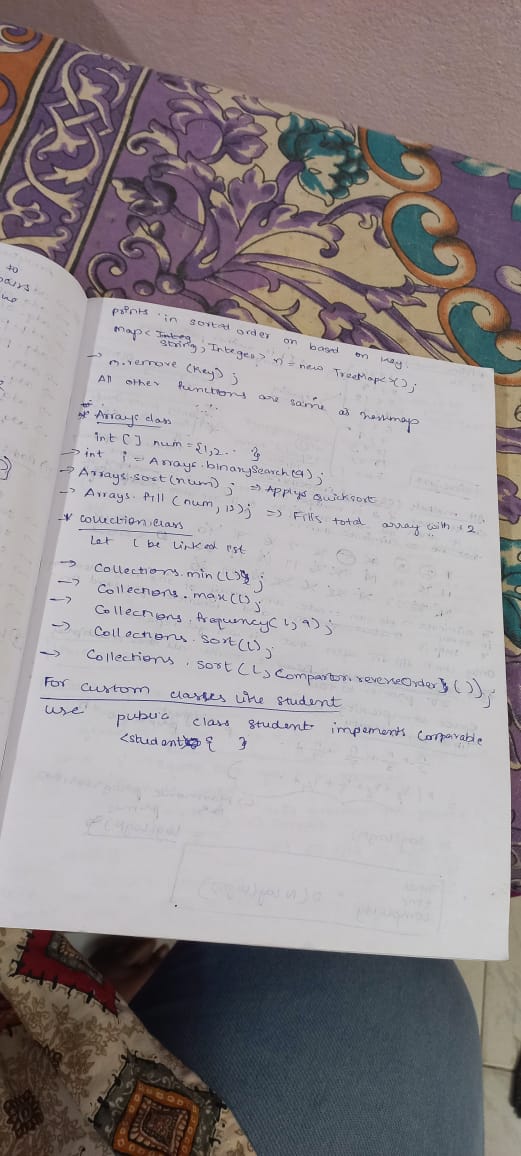 to
pass
prints in sorted order on based on key.
Map<String, Integer> n = new TreeMap<>();
→ n.remove (key);
All other functions are same as hashmap
* Arrays class
int [] num = {1,2.. }
→ int i = Arrays.binarySearch(4);
→ Arrays.sort(num); => Applys quicksort
→ Arrays.fill (num, 12); => Fills total array with 12.
* collection class
Let L be linked list
→ Collections.min(L);
→ Collections.max(L);
→ Collections.frequency(L,9);
→ Collections.sort(L);
→ Collections.sort(L, Compartor.reverseOrder());
For custom classes like student
use public class student impements comparable
<student> { }